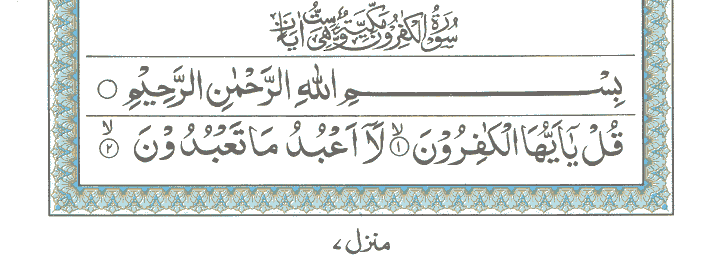 سُوْرَةُ الْكٰفِرُوْنَ مَكِّيَّةٌ وَّهِىَ سِتُّ اٰيَاتٍ
بِسْمِ اللّٰهِ الرَّحْمٰنِ الرَّحِيْمِ ○
قُلْ يٰۤاَيُّهَا الْكٰفِرُوْنَ ۙ﴿۱﴾ لَاۤ اَعْبُدُ مَا تَعْبُدُوْنَ ۙ﴿۲﴾
منزل ۷